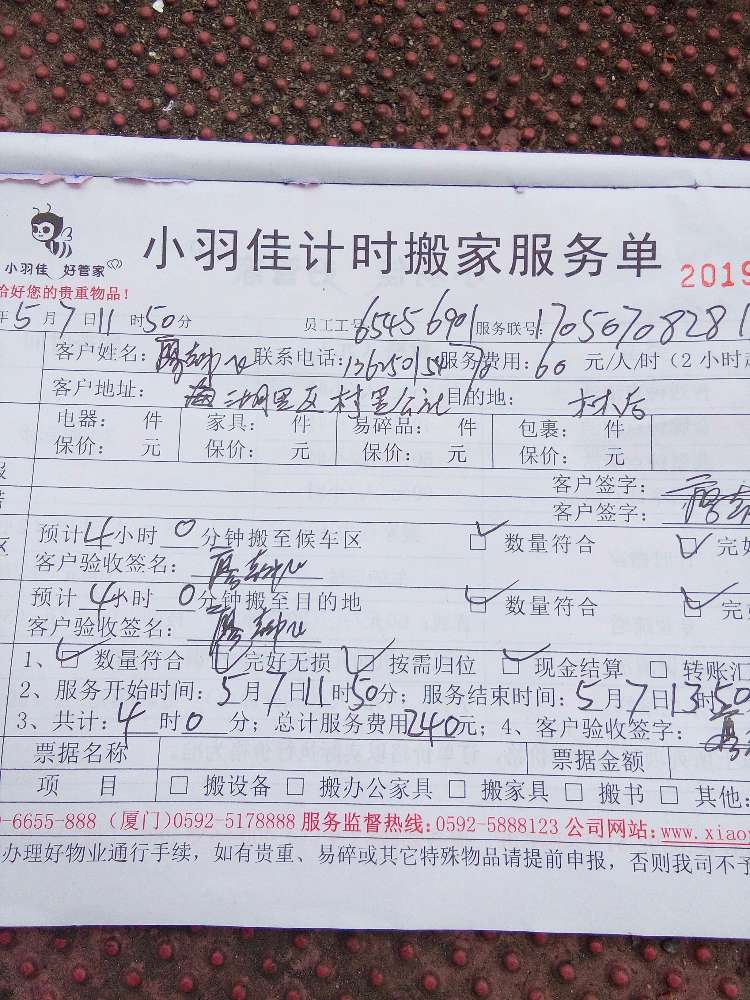 小羽佳 好管家
小羽佳计时搬家服务单 2019
给好您的贵重物品！
年5月7日11时50分 员工工号65456901服务联号:17056708281
客户姓名： 联系电话:13625015478服务费用：60 元/人/时（2 小时
客户地址： 村里公社 目的地：
电器： 件 家具： 件 易碎品： 件 包裹： 件
保价： 元 保价： 元 保价： 元 保价： 元
客户签字：
客户签字：
预计4小时 0分钟搬至候车区 □ 数量符合 □ 完好
客户验收签名：
预计4小时 0分钟搬至目的地 □ 数量符合 □ 完
客户验收签名：
1、□ 数量符合 □ 完好无损 □ 按需归位 □ 现金结算 □ 转账汇
2、服务开始时间：5月7日11时50分；服务结束时间：5月7日13时50
3、共计：4 时0 分；总计服务费用240元；4、客户验收签字：
票据名称 票据金额
项 目 □ 搬设备 □ 搬办公家具 □ 搬家具 □ 搬书 □ 其他：
-6655-888（厦门）0592-5178888 服务监督热线：0592-5888123 公司网站：www.xiao
办理好物业通行手续，如有贵重、易碎或其它特殊物品请提前申报，否则我司不予